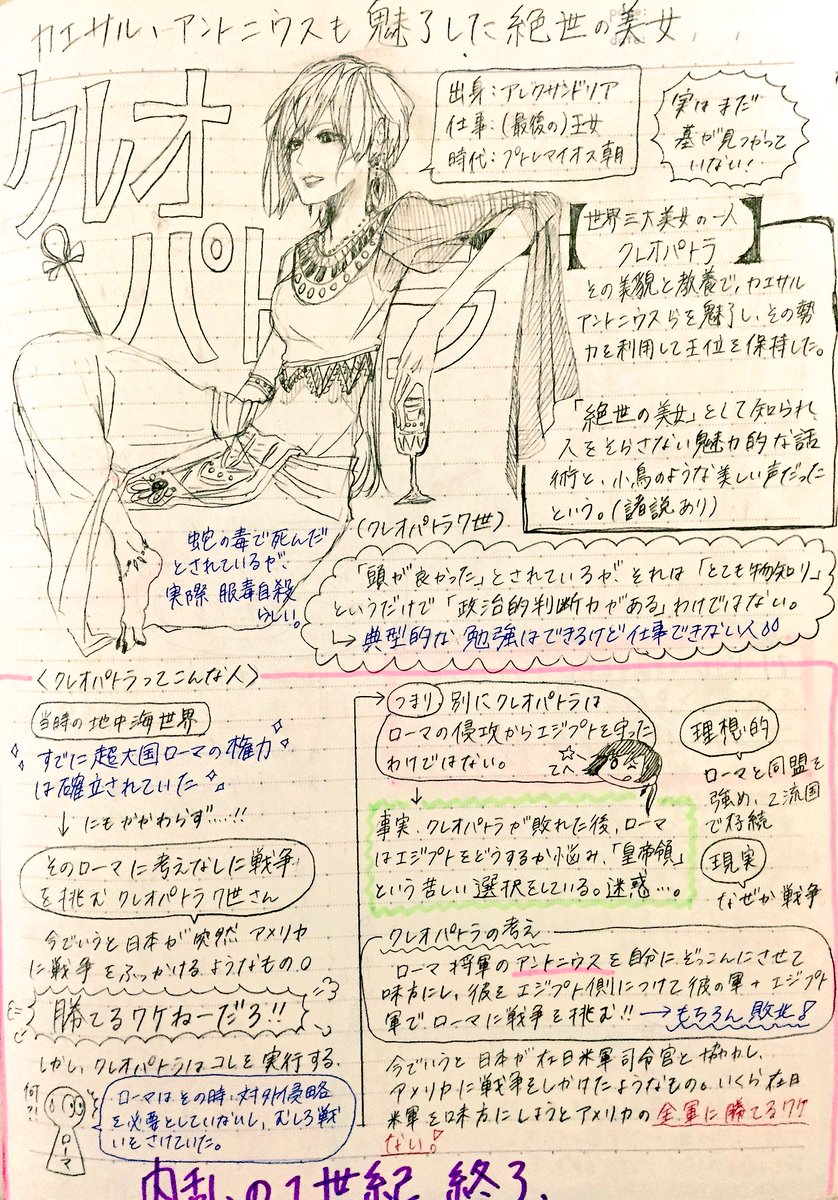 カエサル、アントニウスも魅了した絶世の美女...
クレオ
パトラ
出身：アレクサンドリア
仕事：（最後の）王女
時代：プトレマイオス朝
実はまだ
墓が見つかって
いない！
世界三大美女の一人
クレオパトラ
その美貌と教養で、カエサル
アントニウスらを魅了し、その勢
力を利用して王位を保持した。
「絶世の美女」として知られ
人をそらさない魅力的な話
術と、小鳥のような美しい声だった
という。（諸説あり）
（クレオパトラ7世）
蛇の毒で死んだ
とされているが、
実際服毒自殺
らしい。
「頭が良かった」とされているが、それは「とても物知り」
というだけで「政治的判断力がある」わけではない。
↳典型的な勉強はできるけど仕事できない人
〈クレオパトラってこんな人〉
当時の地中海世界
すでに超大国ローマの権力
は確立されていた
↓にもかかわらず…!!
そのローマに考えなしに戦争
を挑むクレオパトラ7世さん
今でいうと日本が突然アメリカ
に戦争をふっかけるようなもの。
勝てるワケねーだろ!!
しかし、クレオパトラはコレを実行する。
何?!
ローマ
ローマはその時、対外侵略
を必要としていないし、むしろ戦
いをさけていた。
つまり 別にクレオパトラは
ローマの侵攻からエジプトを守った
わけではない。
てへ☆
↓
事実、クレオパトラが敗れた後、ローマ
はエジプトをどうするか悩み、「皇帝領」
という苦しい選択をしている。迷惑…。
理想的
ローマと同盟を
強め、2流国
で存続
現実
なぜか戦争
クレオパトラの考え
ローマ将軍のアントニウスを自分にぞっこんにさせて
味方にし、彼をエジプト側につけて彼の軍＋エジプト
軍でローマに戦争を挑む!! →もちろん敗北！
今でいうと日本が在日米軍司令官と協力し、
アメリカに戦争をしかけたようなもの。いくら在日
米軍を味方にしようとアメリカの全軍に勝てるワケ
ない！
内乱の1世紀 終了。